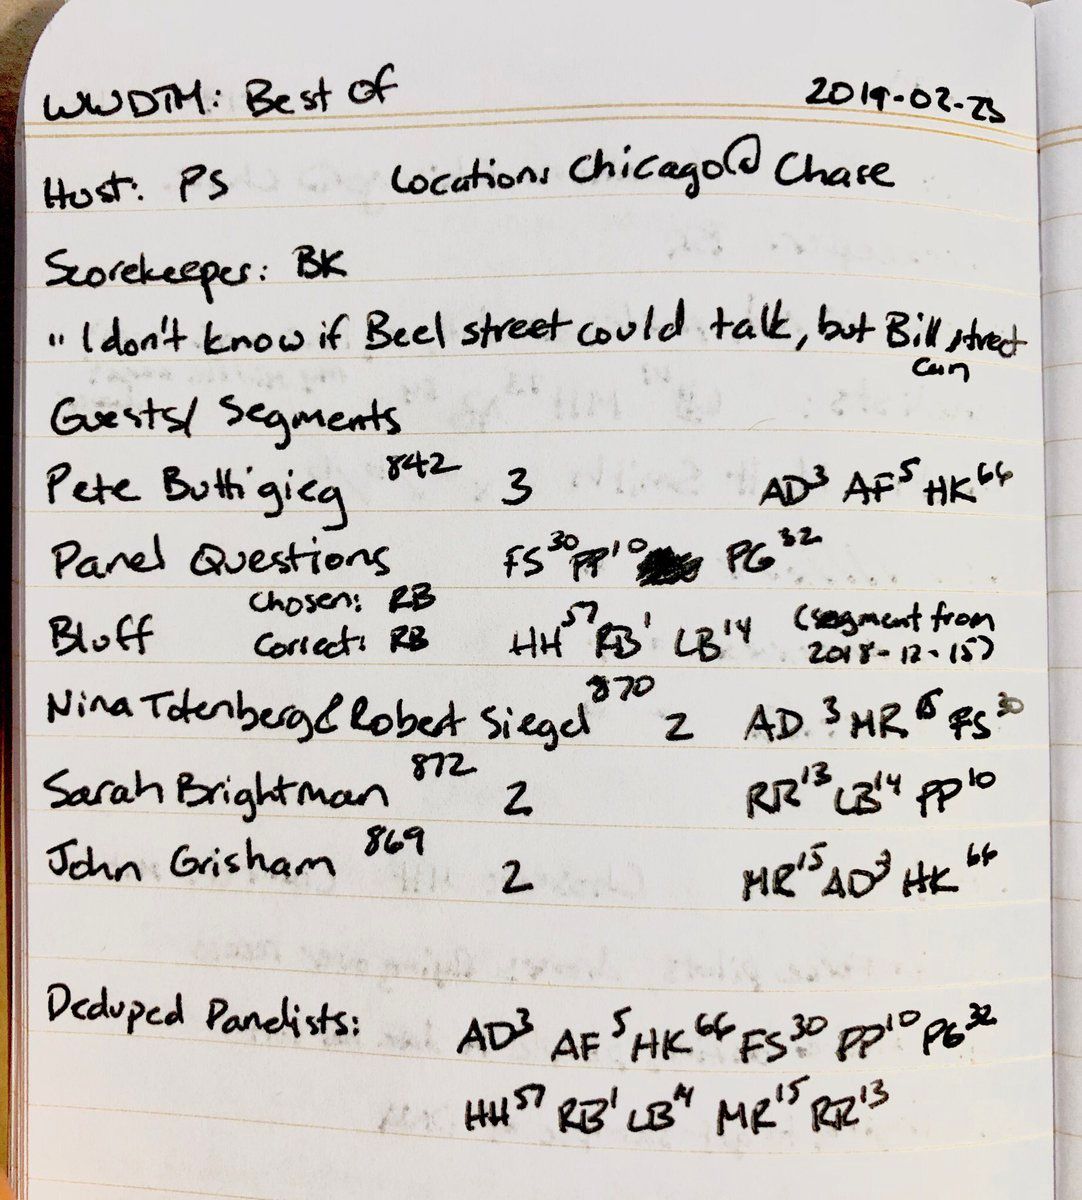 WWDTM: Best Of 2019-02-23
Host: PS Location: Chicago @ Chase
Scorekeeper: BK
"I don't know if Beel street could talk, but Bill street
can
Guests/Segments
Pete Buttigieg 842 3 AD3 AF5 HK66
Panel Questions FS30 PP10 PG32
Chosen: RB
Bluff Correct: RB HH57 RB1 LB14 (segment from
2018-12-15)
Nina Totenberg & Robert Siegel 870 2 AD3 MR15 FS30
Sarah Brightman 872 2 RR13 LB14 PP10
John Grisham 869 2 MR15 AD3 HK66
Deduped Panelists: AD3 AF5 HK66 FS30 PP10 PG32
HH57 RB1 LB14 MR15 RR13